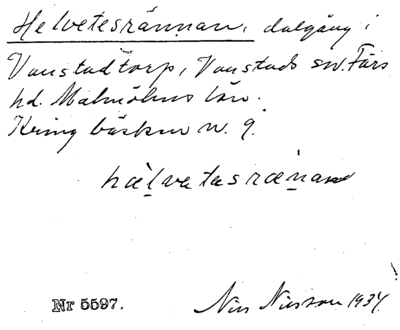 Helvetesrännan, dalgång i
Vanstadtorp, Vanstads sn. Färs
hd. Malmöhus län.
Kring bäcken n. 9.
hælvatasrænan
Nr 5597.
Nils Nilsson 1934